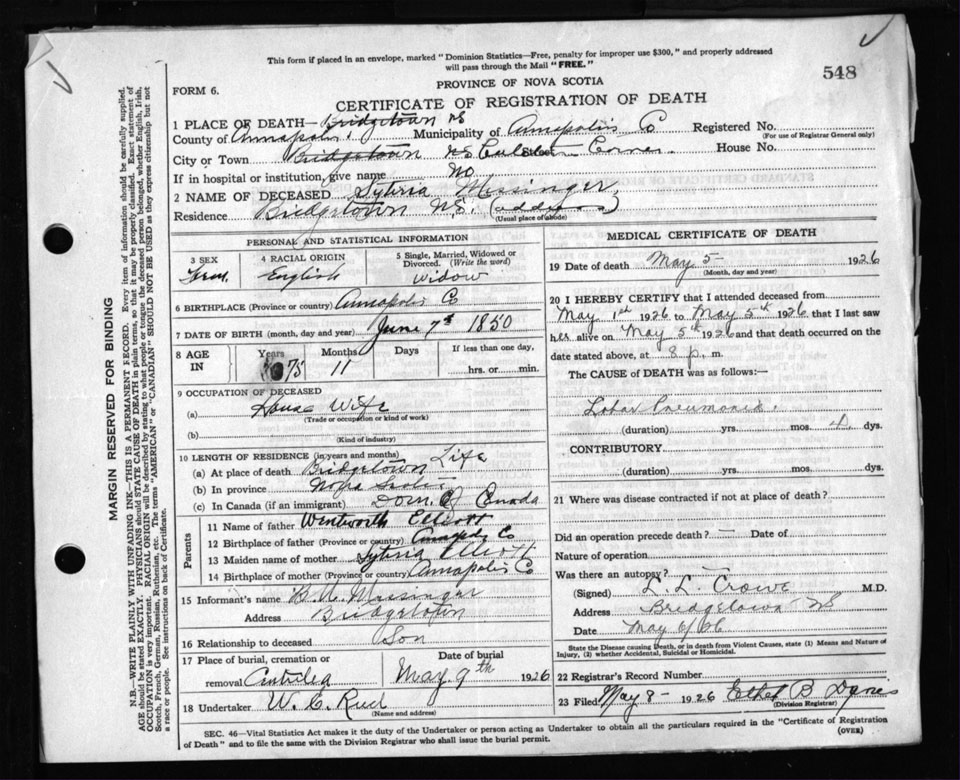 This form if placed in an envelope, marked "Dominion Statistics—Free, penalty for improper use $300," and properly addressed
will pass through the Mail "FREE."
548
PROVINCE OF NOVA SCOTIA
FORM 6.
CERTIFICATE OF REGISTRATION OF DEATH
1 PLACE OF DEATH— Bridgetown NS
County of Annapolis. Municipality of Annapolis Co Registered No.
(For use of Registrar General only)
City or Town Bridgetown NS Corner House No.
If in hospital or institution, give name No
2 NAME OF DECEASED Sylvria Messinger
Residence Bridgetown NS. (address)
(Usual place of abode)
PERSONAL AND STATISTICAL INFORMATION
3 SEX 4 RACIAL ORIGIN 5 Single, Married, Widowed or
Divorced. (Write the word)
Fem. English Widow
6 BIRTHPLACE (Province or country) Annapolis Co
7 DATE OF BIRTH (month, day and year) June 7th 1850
8 AGE IN Years Months Days If less than one day,
75 11 hrs. or min.
9 OCCUPATION OF DECEASED
(a) House Wife
(Trade or occupation or kind of work)
(b)
(Kind of industry)
10 LENGTH OF RESIDENCE (in years and months) Life
(a) At place of death Bridgetown
(b) In province Nova Scotia
(c) In Canada (if an immigrant) Dom. of Canada
Parents
11 Name of father Wentworth Elliott
12 Birthplace of father (Province or country) Annapolis Co
13 Maiden name of mother Sylvria Elliott
14 Birthplace of mother (Province or country) Annapolis Co
15 Informant's name B. A. Messinger
Address Bridgetown
16 Relationship to deceased Son
17 Place of burial, cremation or Date of burial
removal May 9th 1926
18 Undertaker W. C.
(Name and address)
MEDICAL CERTIFICATE OF DEATH
19 Date of death May 5 1926
(Month, day and year)
20 I HEREBY CERTIFY that I attended deceased from
May 1st 1926 to May 5th 1926 that I last saw
her alive on May 5th 1926 and that death occurred on the
date stated above, at 8 p. m.
The CAUSE of DEATH was as follows:—
Lobar Pneumonia.
(duration) yrs. mos. 4 dys.
CONTRIBUTORY
(duration) yrs. mos. dys.
21 Where was disease contracted if not at place of death?
Did an operation precede death? — Date of
Nature of operation
Was there an autopsy? —
(Signed) L. L. Crowe M.D.
Address Bridgetown NS
Date May 6/26
State the Disease causing Death, or in death from Violent Causes, state (1) Means and Nature of
Injury, (2) whether Accidental, Suicidal or Homicidal.
22 Registrar's Record Number
23 Filed May 8- 1926 Ethel B
(Division Registrar)
SEC. 46—Vital Statistics Act makes it the duty of the Undertaker or person acting as Undertaker to obtain all the particulars required in the "Certificate of Registration
of Death" and to file the same with the Division Registrar who shall issue the burial permit.
(OVER)
MARGIN RESERVED FOR BINDING
N.B.—WRITE PLAINLY WITH UNFADING INK—THIS IS A PERMANENT RECORD. Every item of information should be carefully supplied.
AGE should be stated EXACTLY. PHYSICIANS should state CAUSE OF DEATH in plain terms, so that it may be properly classified. Exact statement of
OCCUPATION is very important. RACIAL ORIGIN will be described by stating to what people or tongue the deceased person belonged, whether English, Irish,
Scotch, French, German, Russian, Ruthenian, etc. The terms "AMERICAN" or "CANADIAN" SHOULD NOT BE USED as they express citizenship but not
a race or people. See instructions on back of Certificate.